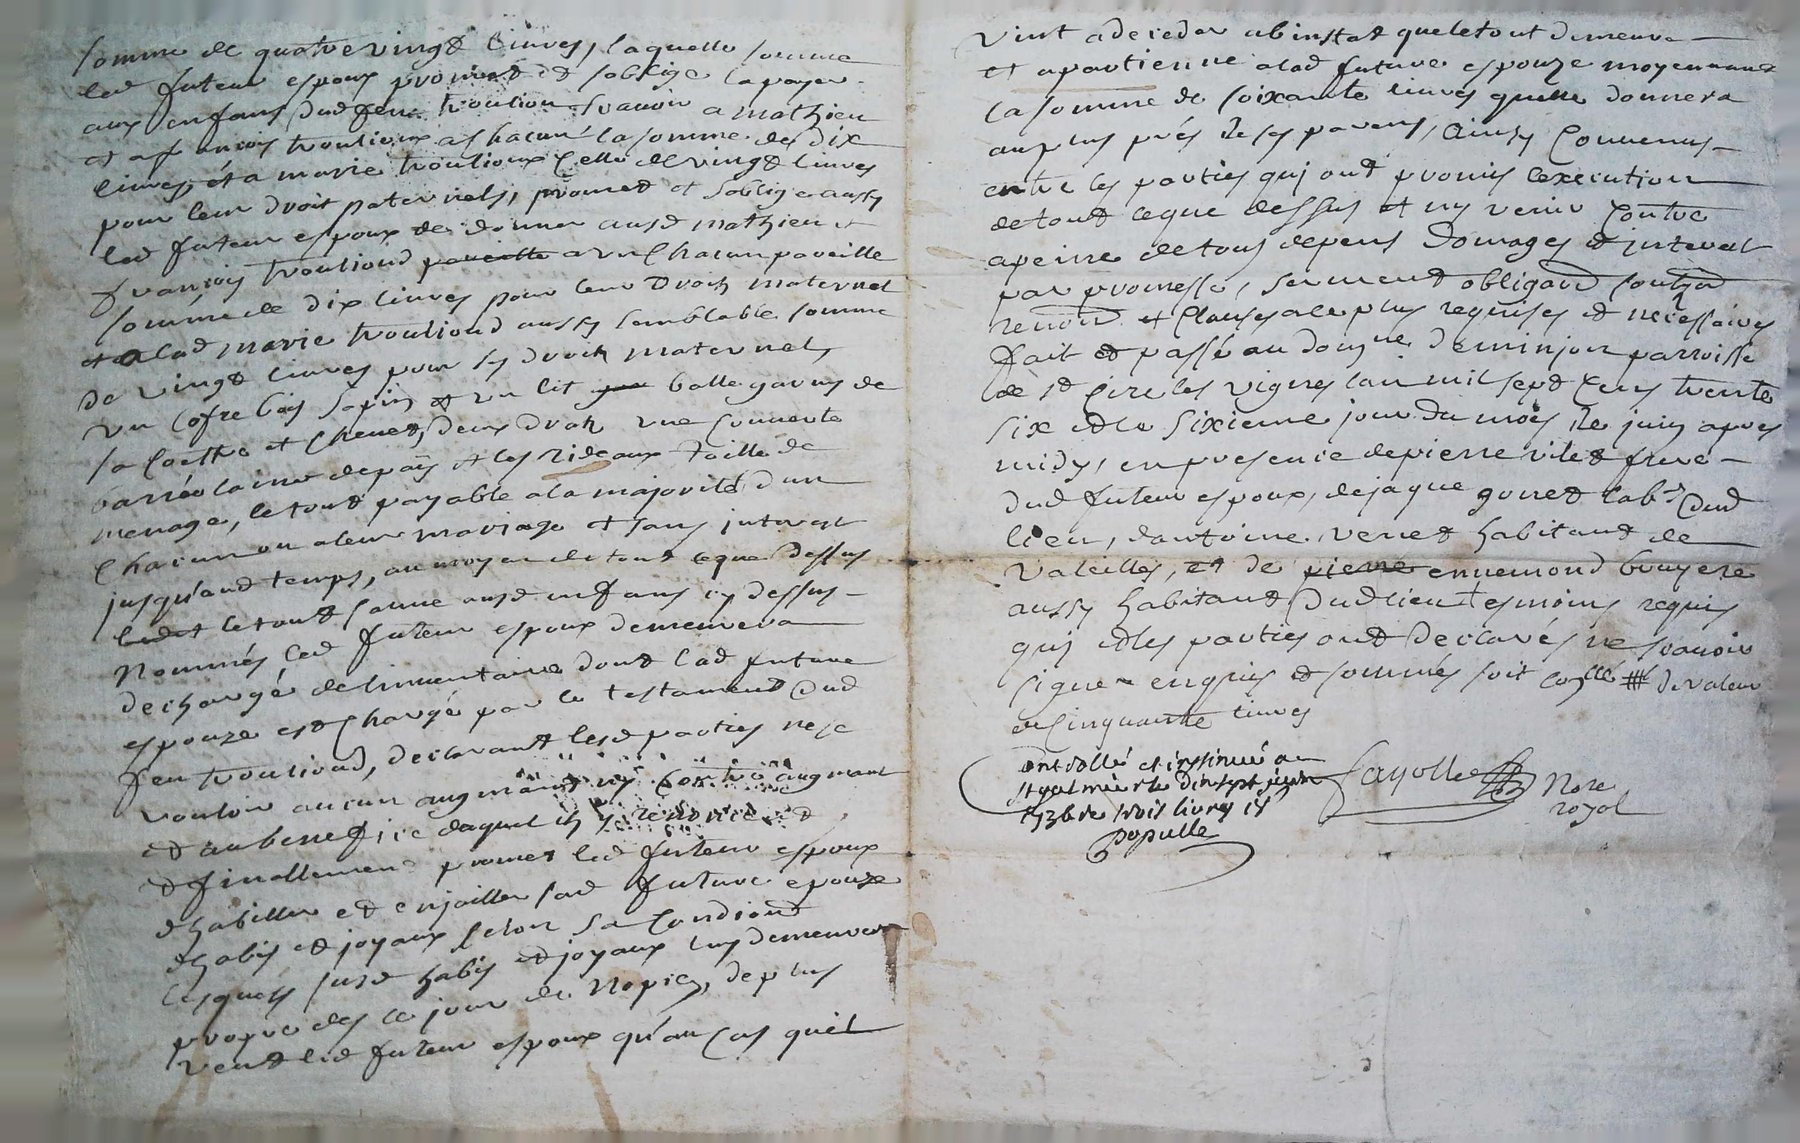 somme de quatre vingt livres, laquelle somme
led futeur espoux promet et soblige la payer
aux enfans dud feu troulioud scavoir a mathieu
et a francois troulioux a chacun la somme de dix
livres, et a marie troulioux celle de vingt livres
pour leur droit paternels, promet et soblige aussy
led futeur espoux de donner ausd mathieu et
francois troulioud pareille a un chacun pareille
somme de dix livres pour leur droit maternel
et a lad marie troulioud aussy semblable somme
de vingt livres pour ses droit maternel,
un cofre bois sapin et un lit balle garny de
sa coettre et chevet, deux drat une couverte
barrée laine de païs et les rideaux toille de
menage, le tout payable a la majorité d'un
chacun ou a leur mariage et sans interest
jusqu'aud temps, au moyen de tout ce que dessus
le tout ausd enfans cy dessus
nommés led futeur espoux demeurera
dechargé de linventaire dont lad future
espouze est chargé par le testament dud
feu troulioud, declarant lesd parties ne se
vouloir aucun augmant ny contre augmant
et au benefice duquel ils y renonce et
et finallement promet led futeur espoux
dhabiller et enjoailler sad future epouze
dhabis et joyaux selon sa condiond
lesquels susd habis et joyaux luy demeureront
propre des ce jour de nopces, de plus
veut led futeur espoux qu'au cas quil
vint a deceder abinstat que le tout demeure
et apartienne a lad future espouze moyennant
la somme de soixante livres quelle donnera
au plus prés de ses parens, ainsy convenus
entre les parties qui ont promis lexecution
de tout ce que dessus et ny venir contre
a peine de tous depens domages et interest
par promesse, serment obligaod
renoon et clauses a ce plus requises et necessaires
fait et passé au de minjon parroisse
de st cire les vignes lan mil sept cens trente
six et le sixieme jour du mois de juin apres
midy, en presence de pierre vilet frere
dud futeur espoux, de jaque gonet labr dud
lieu, dantoine venet habitant de
valeilles, et de pierre ennemond bruyere
aussy habitant dud lieu tesmoins requis
qui et les parties ont declarés ne scavoir
signer enquis et sommés soit conllé # de valeur
de cinquante livres
controllé et insinué a
st galmier le dixsept juin
1736 re trois livres
populle
Fayolle
Nore
royal